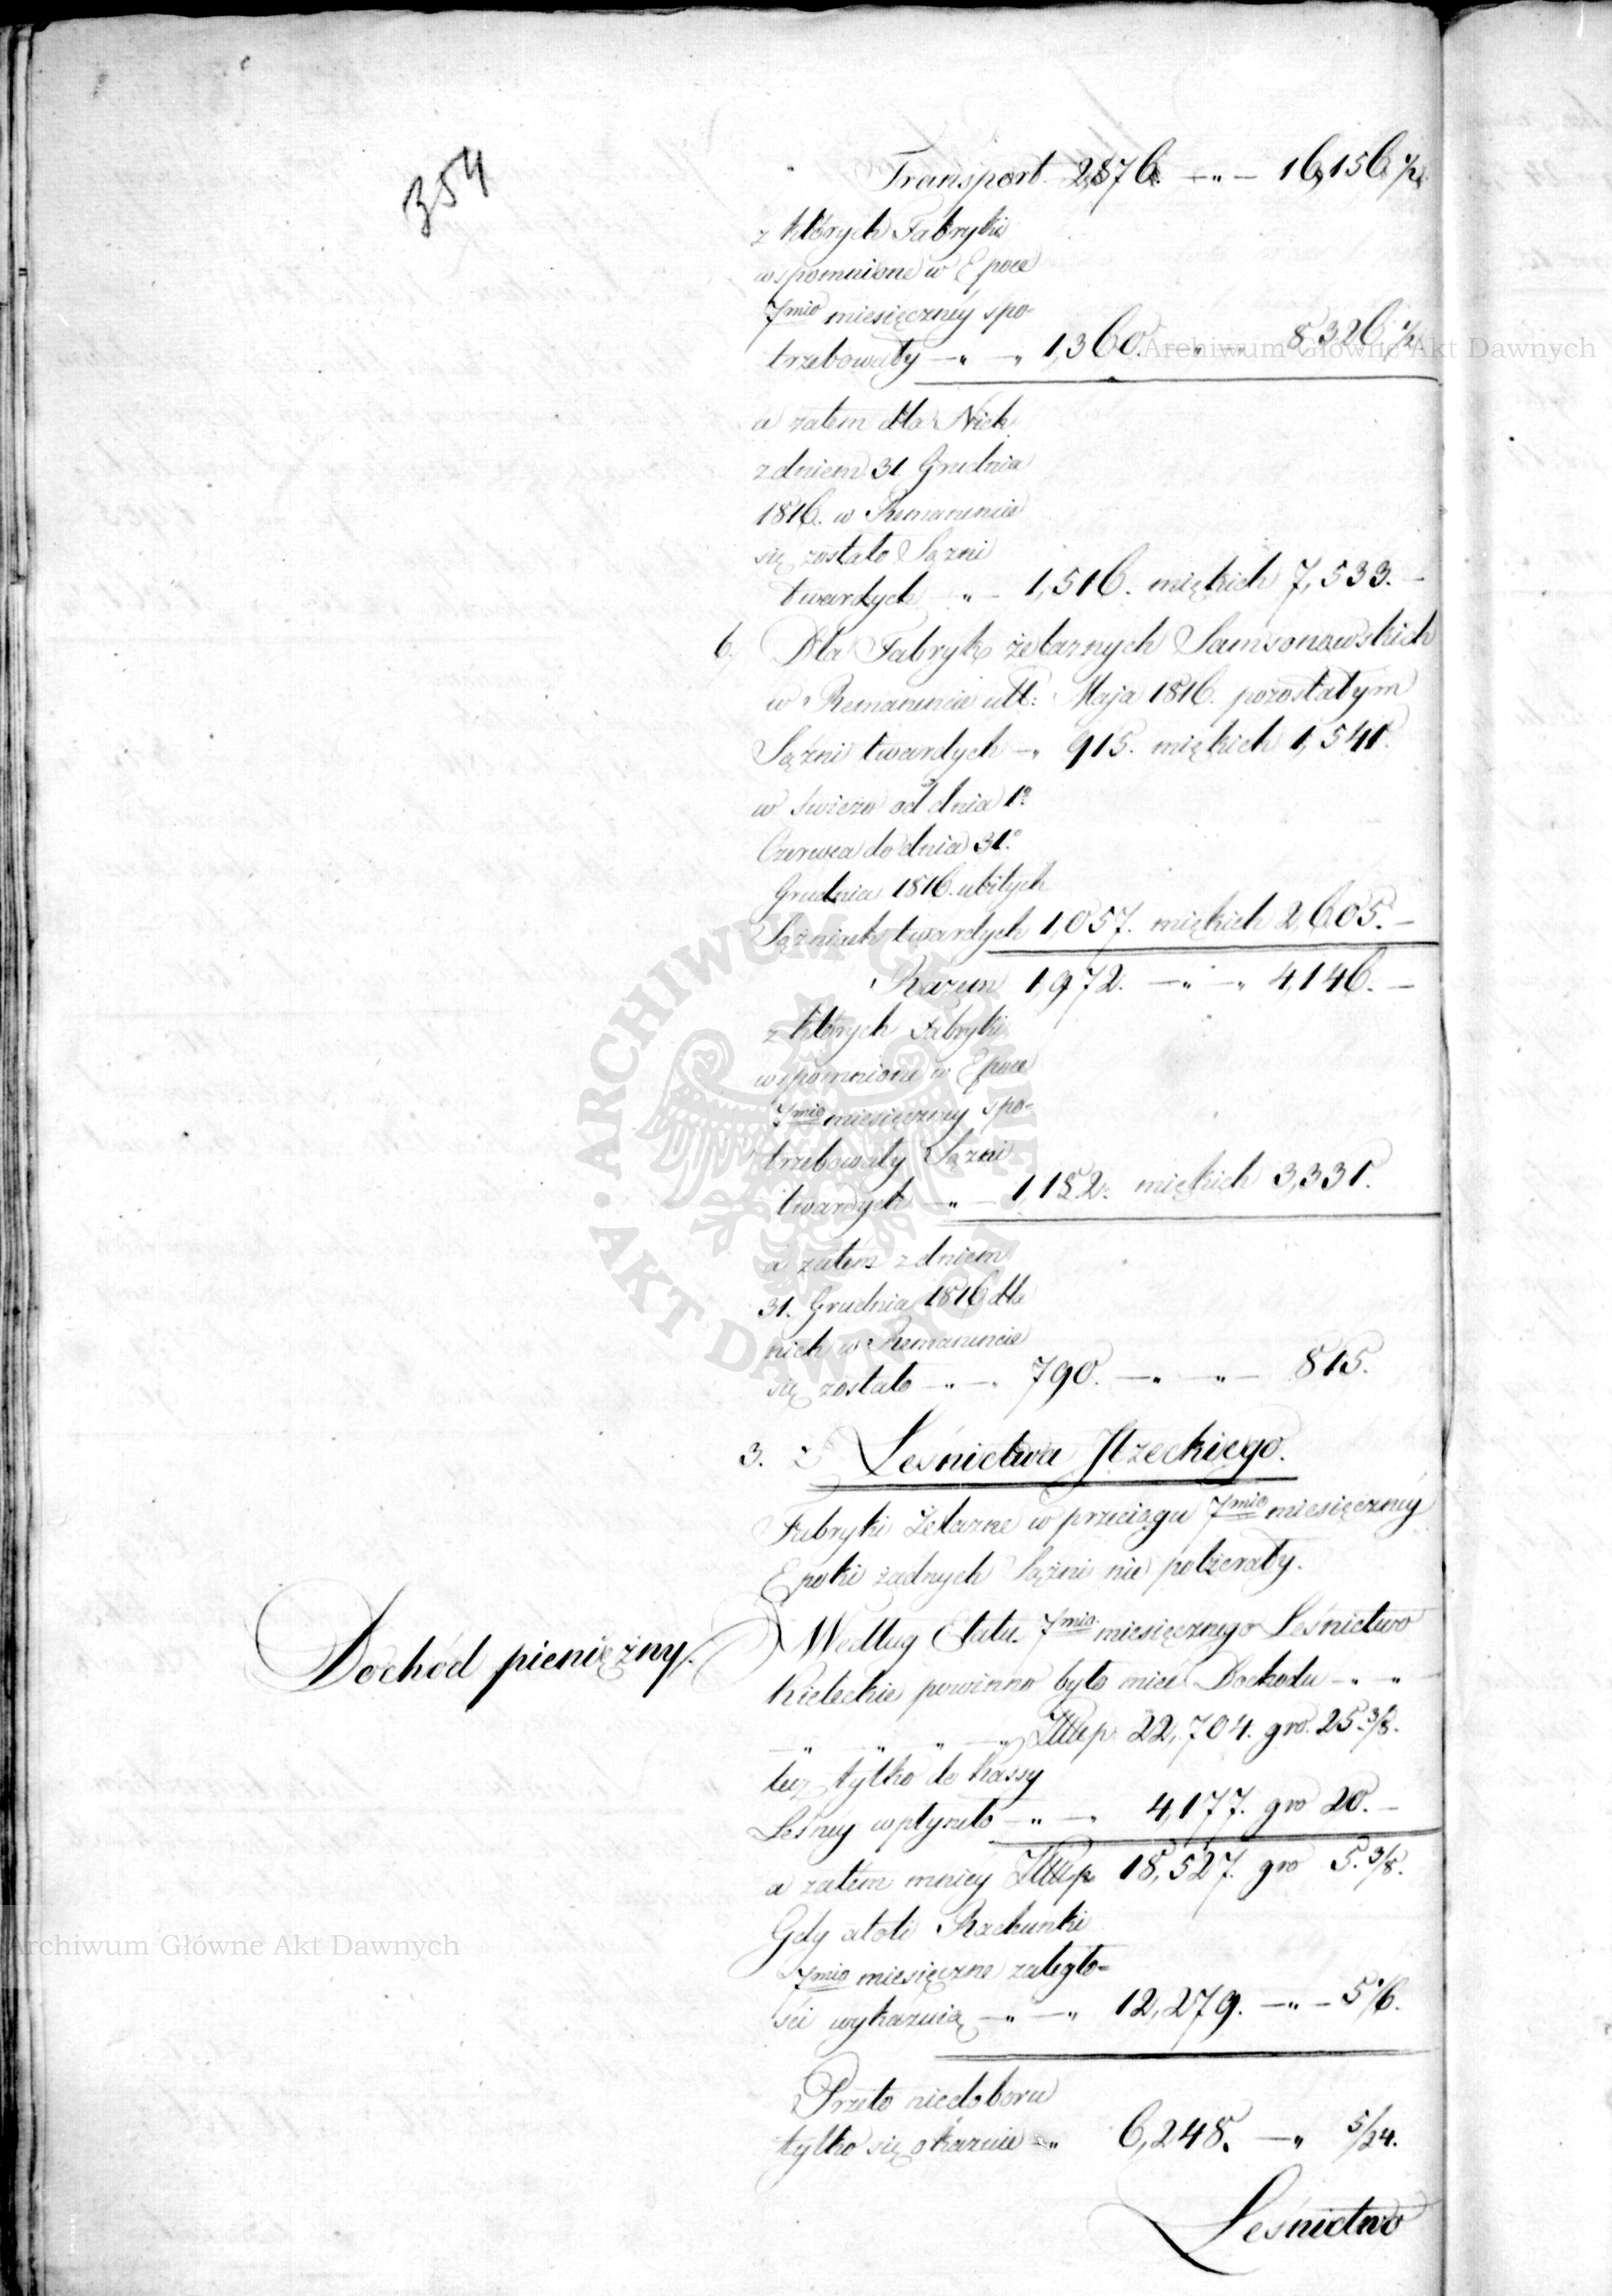 354
Transport 2,876. — „ — 16,156 1/2.
z których Fabryki
wspomnione w Epoce
7mio miesięcznéy spo-
trzebowały — „ — „ 1,360. — „ — 8,326 1/2
a zatem dla Nich
z dniem 31 Grudnia
1816. w Remanencie
się zostało Sążni
twardych „ — 1,516. miękich 7,533. —
6. Dla Fabryk żelaznych Samsonowskich
w Remanencie ult: Maja 1816. pozostałym
Sążni twardych — „ 915. miękich 1,541.
w świeżo od dnia 1o
Czerwca do dnia 31o
Grudnia 1816. ubitych
Sążniach twardych 1,057. miękich 2,605. —
Razem 1,972. — „ — „ 4,146. —
z których Fabryki
wspomnione w Epoce
7mio miesięczney spo-
trzebowały Sążni
twardych — „ — 1,182. miękich 3,331.
a zatem z dniem
31. Grudnia 1816 dla
nich w Remanencie
się zostało — „ — „ 790. — „ — „ — 815.
3. z Leśnictwa Iłzeckiego.
Fabryki Żelazne w przeciągu 7mio miesięcznéy
Epoki żadnych Sążni nie pobierały.
Dochód pieniężny.
Według Etatu 7mio miesięcznego Leśnictwo
Kieleckie powinno było mieć Dochodu — „ — „ —
— „ — „ — „ — „ Złłłp. 22,704. gro. 25. 3/8.
lecz tylko do Kassy
Leśney wpłynęło — „ — „ 4,177. gro 20. —
a zatem mniey Złłłp. 18,527. gro 5. 3/8.
Gdy atoli Rachunki
7mio miesięczne zaległo=
ści wykazuią — „ — „ 12,279. — „ — 5 1/6.
Przeto niedoboru
tylko się okazuie — „ 6,248. — „ 5/24.
Leśnictwo
Archiwum Główne Akt Dawnych
Archiwum Główne Akt Dawnych
ARCHIWUM GŁÓWNE · AKT DAWNYCH ·